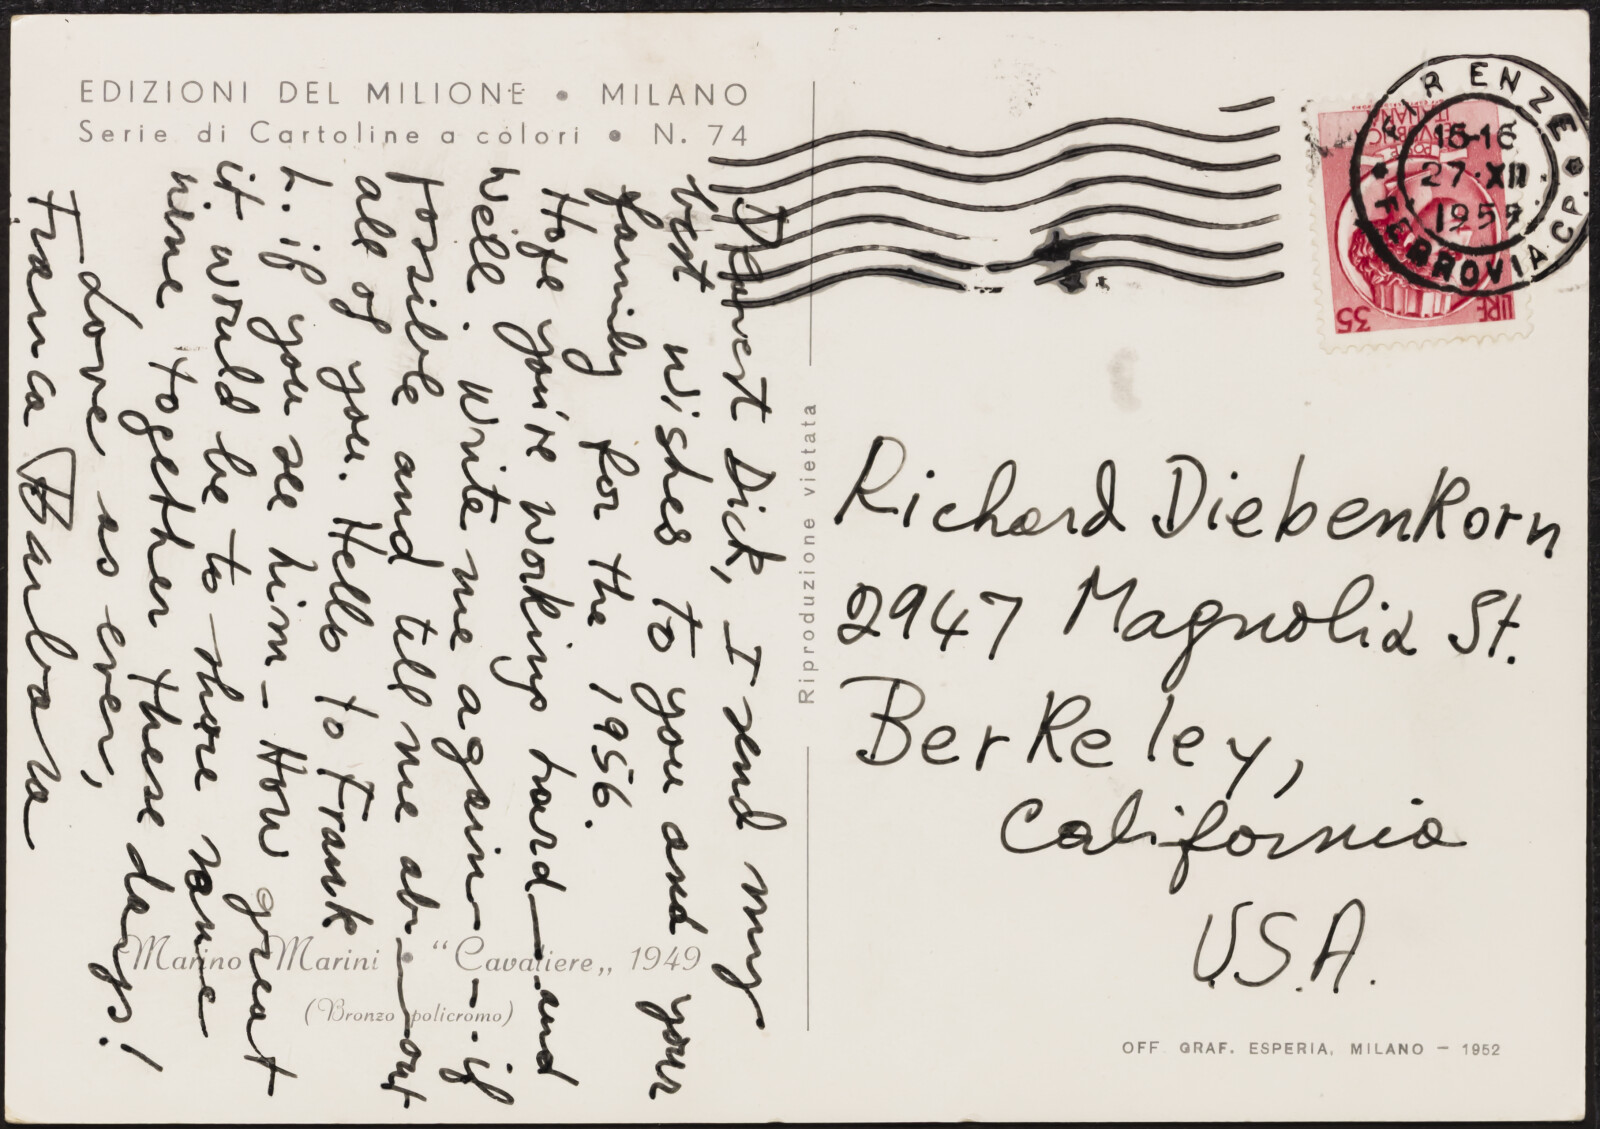 EDIZIONI DEL MILIONE • MILANO
Serie di Cartoline a colori • N. 74
Dearest Dick, I send my
best wishes to you and your
family for the 1956.
Hope you're working hard — and
well. Write me again — if
possible and tell me ab—out
all of you. Hello to Frank
L. if you see him — How great
it would be to share some
wine together these days!
Love as ever,
Franca Barbara
Marino Marini • "Cavaliere„ 1949
(Bronzo policromo)
Riproduzione vietata
FIRENZE
15-16
27·XII
1955
FERROVIA C.P.
ITALIANA
LIRE 35
Richard Diebenkorn
2947 Magnolia St.
Berkeley,
California
U.S.A.
OFF. GRAF. ESPERIA, MILANO – 1952